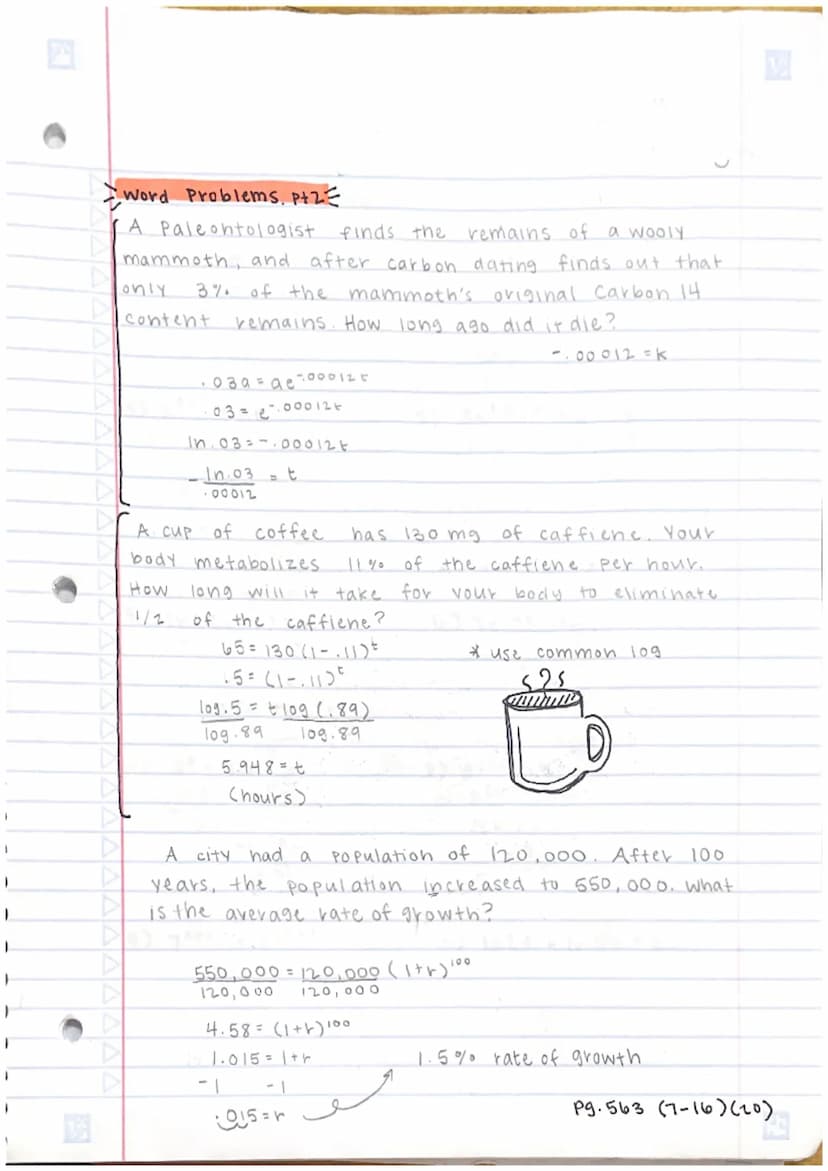 Word Problems. pt2
A Paleontologist finds the remains of a wooly
mammoth, and after carbon dating finds out that
only 3% of the mammoth's original Carbon 14
content remains. How long ago did it die?
-.00012 = k
.03a = ae^-.00012t
.03 = e^-.00012t
ln .03 = -.00012t
- ln.03 / .00012 = t
A cup of coffee has 130 mg of caffiene. Your
body metabolizes 11% of the caffiene per hour.
How long will it take for your body to eliminate
1/2 of the caffiene?
65 = 130 (1-.11)^t
* use common log
.5 = (1-.11)^t
log.5 = t log (.89)
log.89 log.89
5.948 = t
(hours)
A city had a population of 120,000. After 100
years, the population increased to 550,000. What
is the average rate of growth?
550,000 = 120,000 (1+r)^100
120,000 120,000
4.58 = (1+r)^100
1.015 = 1+r
1.5% rate of growth
-1 -1
.015 = r
Pg. 563 (7-16)(20)